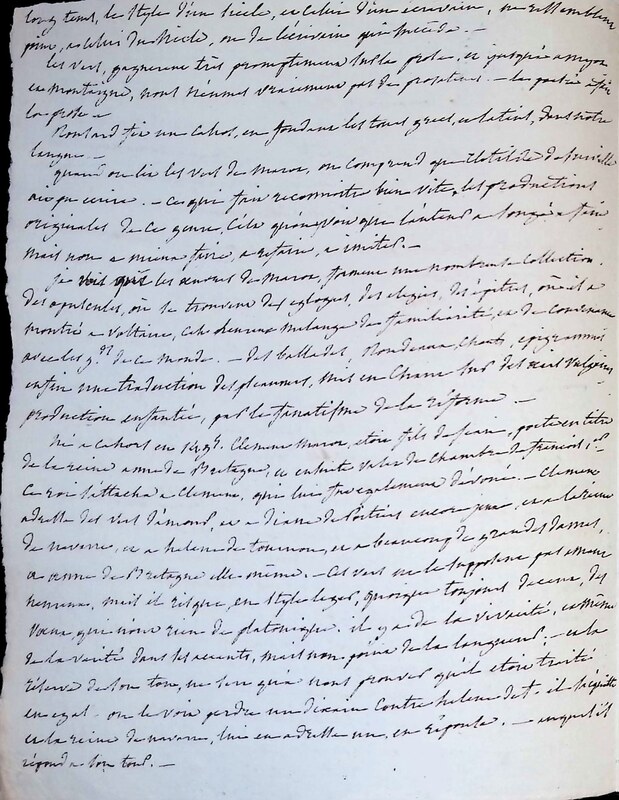 long tems, le style d'un siècle, et celui d'un écrivain, ne ressemblent
point, a celui du siecle, ou de l'écrivain qui précéde. —
les vers, gagnerent très promptement sur la prose, et jusques a
en montaigne, nous n'eumes vraiment pas de prosateurs. — la poésie
la prose —
Ronsard fit un cahos, en fondant les tours grecs, et latins, dans notre
langue. —
quand on lit les vers de marot, on comprend que Clotilde de Surville
— Ce qui fait reconnoitre bien vite, les productions
originales de ce genre, c'est qu'on voit que l'auteur a songé a faire
mais non a faire, a refaire, a imiter. —
je vois que les œuvres de marot, forment une nombreuse collection.
des opuscules, où se trouvent des eglogues, des elegies, des épitres, où il a
montré a voltaire, cet heureux mélange de familiarité, et de convenance
avec les g.ds de ce monde. — des ballades, Rondeaux, chants, épigrammes
enfin une traduction des pseaumes, mis en chant sur des airs vulgaires
production enfantée, par le fanatisme de la réforme. —
Né a cahors en 1495. Clement marot, etoit fils de jean, poete en titre
de la reine anne de Bretagne, et ensuite valet de chambre de francois 1.er
Ce roi s'attacha a Clement, qui lui fut egalement dévoué. — Clement
adresse des vers d'amour, et a Diane de Poitiers encore jeune, et a la reine
de navarre, et a helene de tournon, et a beaucoup de grandes dames,
a anne de Bretagne elle même. — Ces vers ne le supposent pas amant
heureux, mais il risque, en style leger, quoique toujours decent, des
vœux, qui n'ont rien de platonique. il y a de la vivacité, et même
de la variété dans les accents, mais non point de la langueur. — et la
réserve de son ton, ne sert qu'a nous prouver qu'il etoit traité
en egal. on le voit perdre un dixain contre helene de t. il s'acquitte
et la reine de navarre, lui en adresse un, en réponse. — auquel il
répond a son tour. —